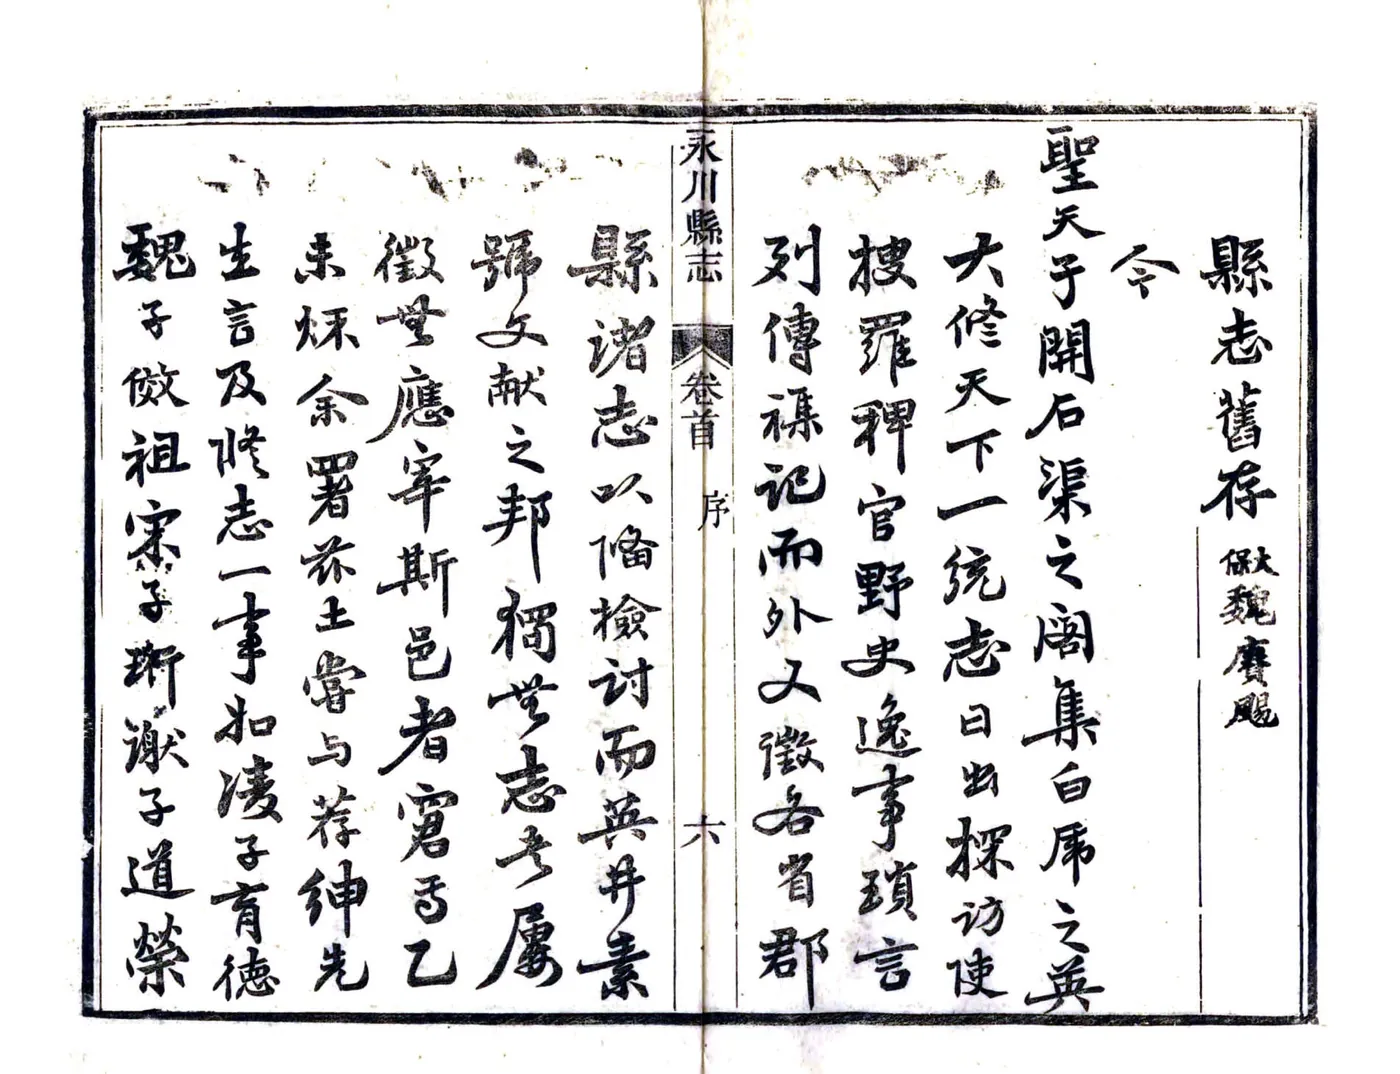 縣志舊存 大保魏賡颺
今
聖天子開石渠之閣集白虎之英
大修天下一統志日出採訪使
搜羅稗官野史逸事瑣言
列傳襍記而外又徵各省郡
永川縣志 卷首 序 六
縣諸志以俻檢討而英井素
號文献之邦獨無志書屢
徵無應宰斯邑者窘焉乙
未秌余署茲土嘗与荐紳先
生言及修志一事如凌子育德
魏子倣祖宋子珩謝子道榮